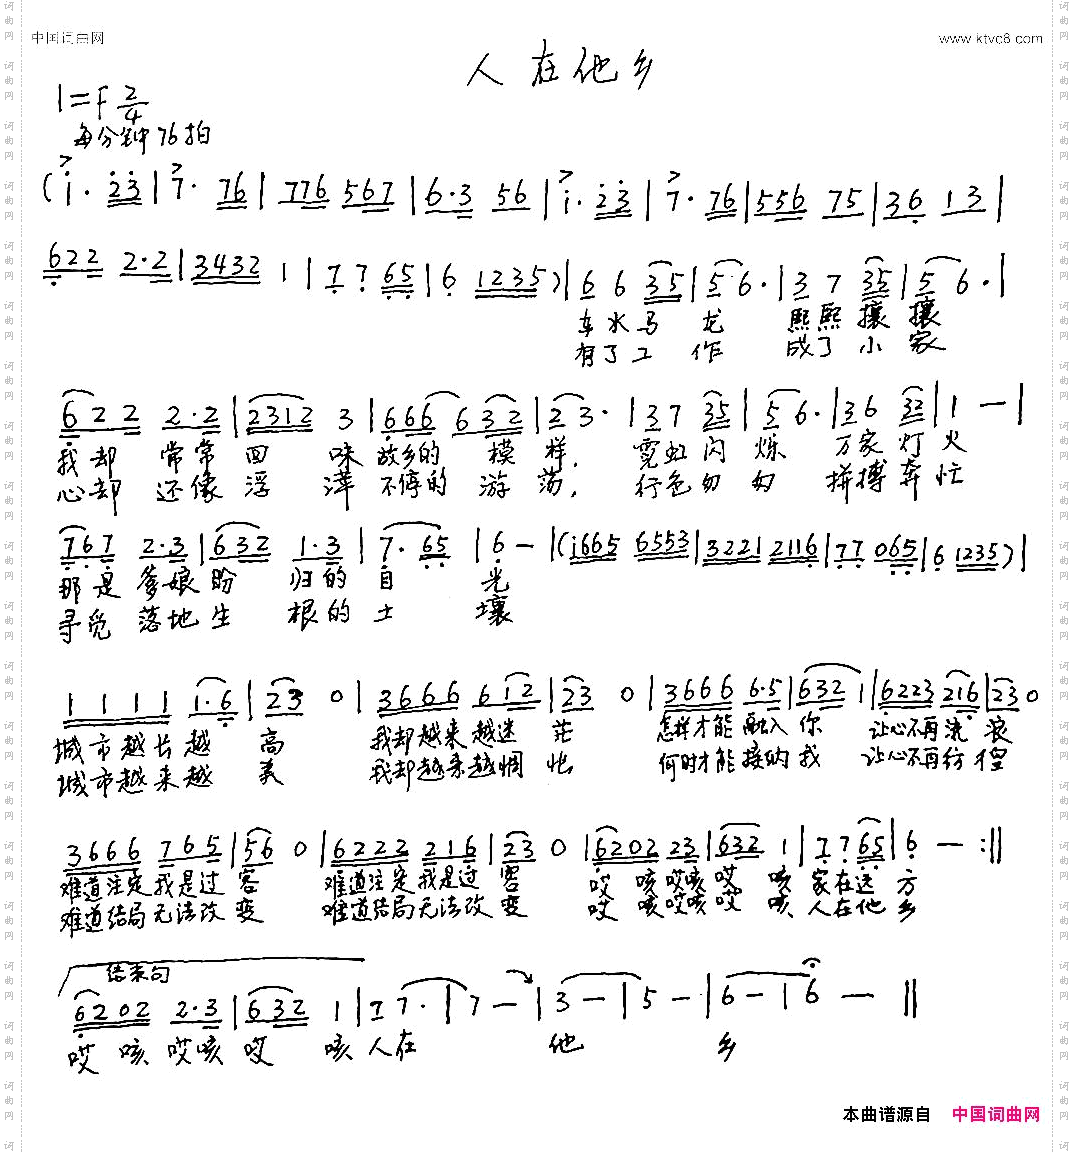 中国词曲网
www.ktvc8.com
人在他乡
1=F 2/4
每分钟76拍
(i· 23|7· 76|776 567|6·3 56|i· 23|7· 76|556 75|36 13|
622 2·2|3432 1|77 65|6 1235)|66 35|56·|37 35|56·|
车水马龙 熙熙攘攘
有了工作 成了小家
622 2·2|2312 3|666 632|23·|37 35|56·|36 32|1 —|
我却常常回味故乡的模样, 霓虹闪烁 万家灯火
心却还像浮萍不停的游荡, 行色匆匆 拼搏奔忙
767 2·3|632 1·3|7· 65|6 —|(i665 6553|3221 2116|77 065|6 1235)|
那是爹娘盼归的目光
寻觅落地生根的土壤
1111 1·6|23 0|3666 612|23 0|3666 6·5|632 1|6223 216|23 0
城市越长越高 我却越来越迷茫 怎样才能融入你 让心不再流浪
城市越来越美 我却越来越惆怅 何时才能接纳我 让心不再彷徨
3666 765|56 0|6222 216|23 0|6202 23|632 1|77 65|6 — :||
难道注定我是过客 难道注定我是过客 哎咳哎咳哎咳家在远方
难道结局无法改变 难道结局无法改变 哎咳哎咳哎咳人在他乡
结束句
6202 2·3|632 1|77·|7 —|3 —|5 —|6 —|6 — ||
哎咳哎咳哎咳人在他乡
本曲谱源自 中国词曲网